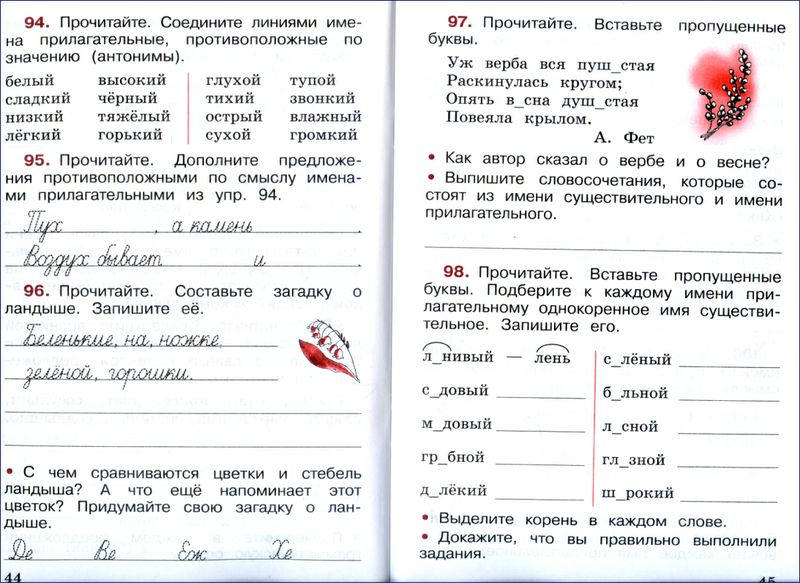 94. Прочитайте. Соедините линиями име-
на прилагательные, противоположные по
значению (антонимы).
белый высокий глухой тупой
сладкий чёрный тихий звонкий
низкий тяжёлый острый влажный
лёгкий горький сухой громкий
95. Прочитайте. Дополните предложе-
ния противоположными по смыслу имена-
ми прилагательными из упр. 94.
Пух , а камень .
Воздух бывает и .
96. Прочитайте. Составьте загадку о
ландыше. Запишите её.
Беленькие, на, ножке,
зелёной, горошки.
• С чем сравниваются цветки и стебель
ландыша? А что ещё напоминает этот
цветок? Придумайте свою загадку о лан-
дыше.
Де Ве Бж Хе
44
97. Прочитайте. Вставьте пропущенные
буквы.
Уж верба вся пуш_стая
Раскинулась кругом;
Опять в_сна душ_стая
Повеяла крылом.
А. Фет
• Как автор сказал о вербе и о весне?
• Выпишите словосочетания, которые со-
стоят из имени существительного и имени
прилагательного.
98. Прочитайте. Вставьте пропущенные
буквы. Подберите к каждому имени при-
лагательному однокоренное имя существи-
тельное. Запишите его.
л_нивый — лень с_лёный
с_довый б_льной
м_довый л_сной
гр_бной гл_зной
д_лёкий ш_рокий
• Выделите корень в каждом слове.
• Докажите, что вы правильно выполнили
задания.
45